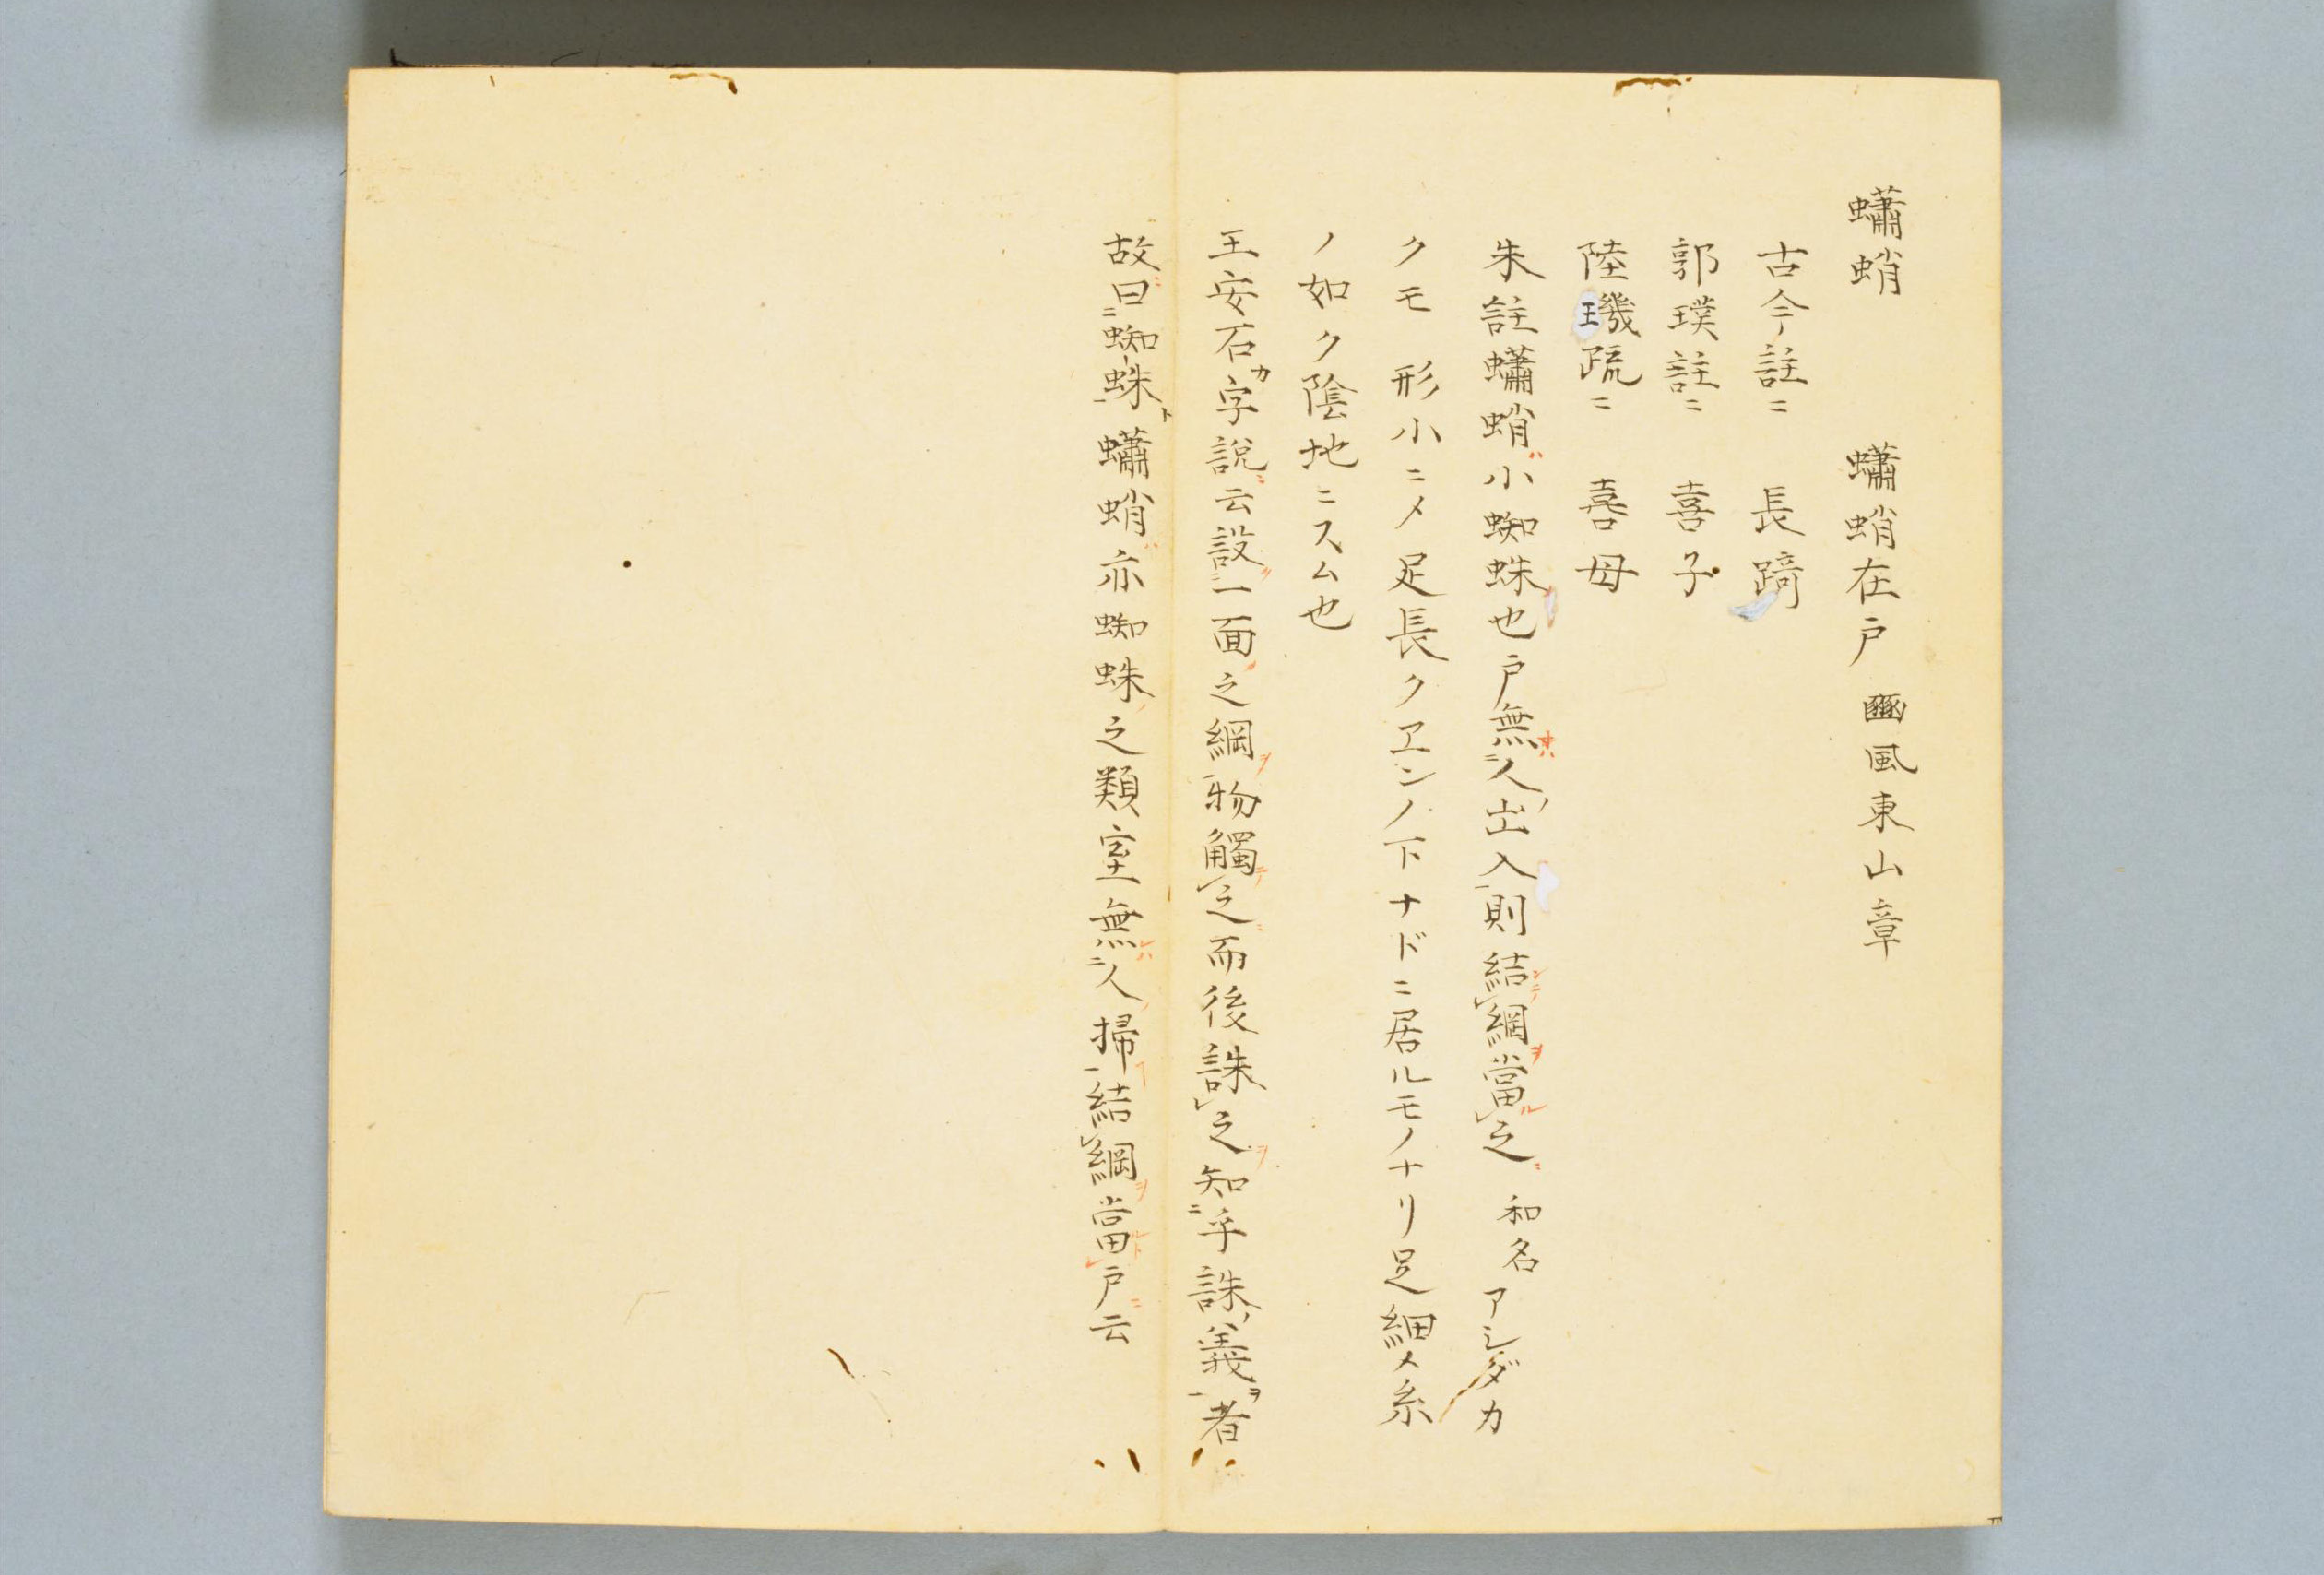 蠨蛸　蠨蛸在戸　豳風東山章
古今註ニ　長踦
郭璞註ニ　喜子
陸璣疏ニ　喜母
朱註蠨蛸ハ小蜘蛛也戸無人ノ出入則結網ヲ當ルレ之ニ　和名アシダカ
クモ　形小ニメ足長クヱンノ下ナドニ居ルモノナリ足細メ糸
ノ如ク陰地ニスム也
王安石カ字說ニ云設一面ノ之網ヲ物觸テレ之ニ而後誅レ之ヲ知乎誅ノ義ヲ者
故ニ曰蜘蛛ト蠨蛸ハ亦蜘蛛ノ之類室無人掃結レ網ヲ當ルトレ戸ニ云